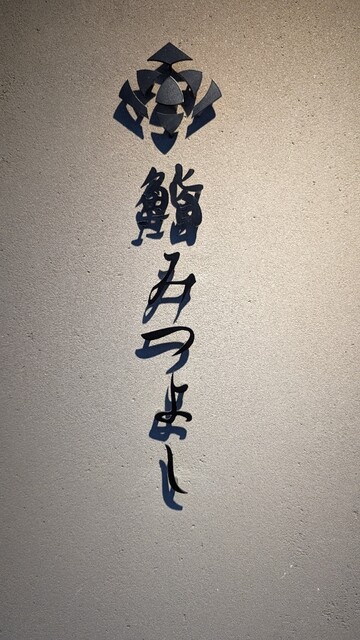 鮨みつよし